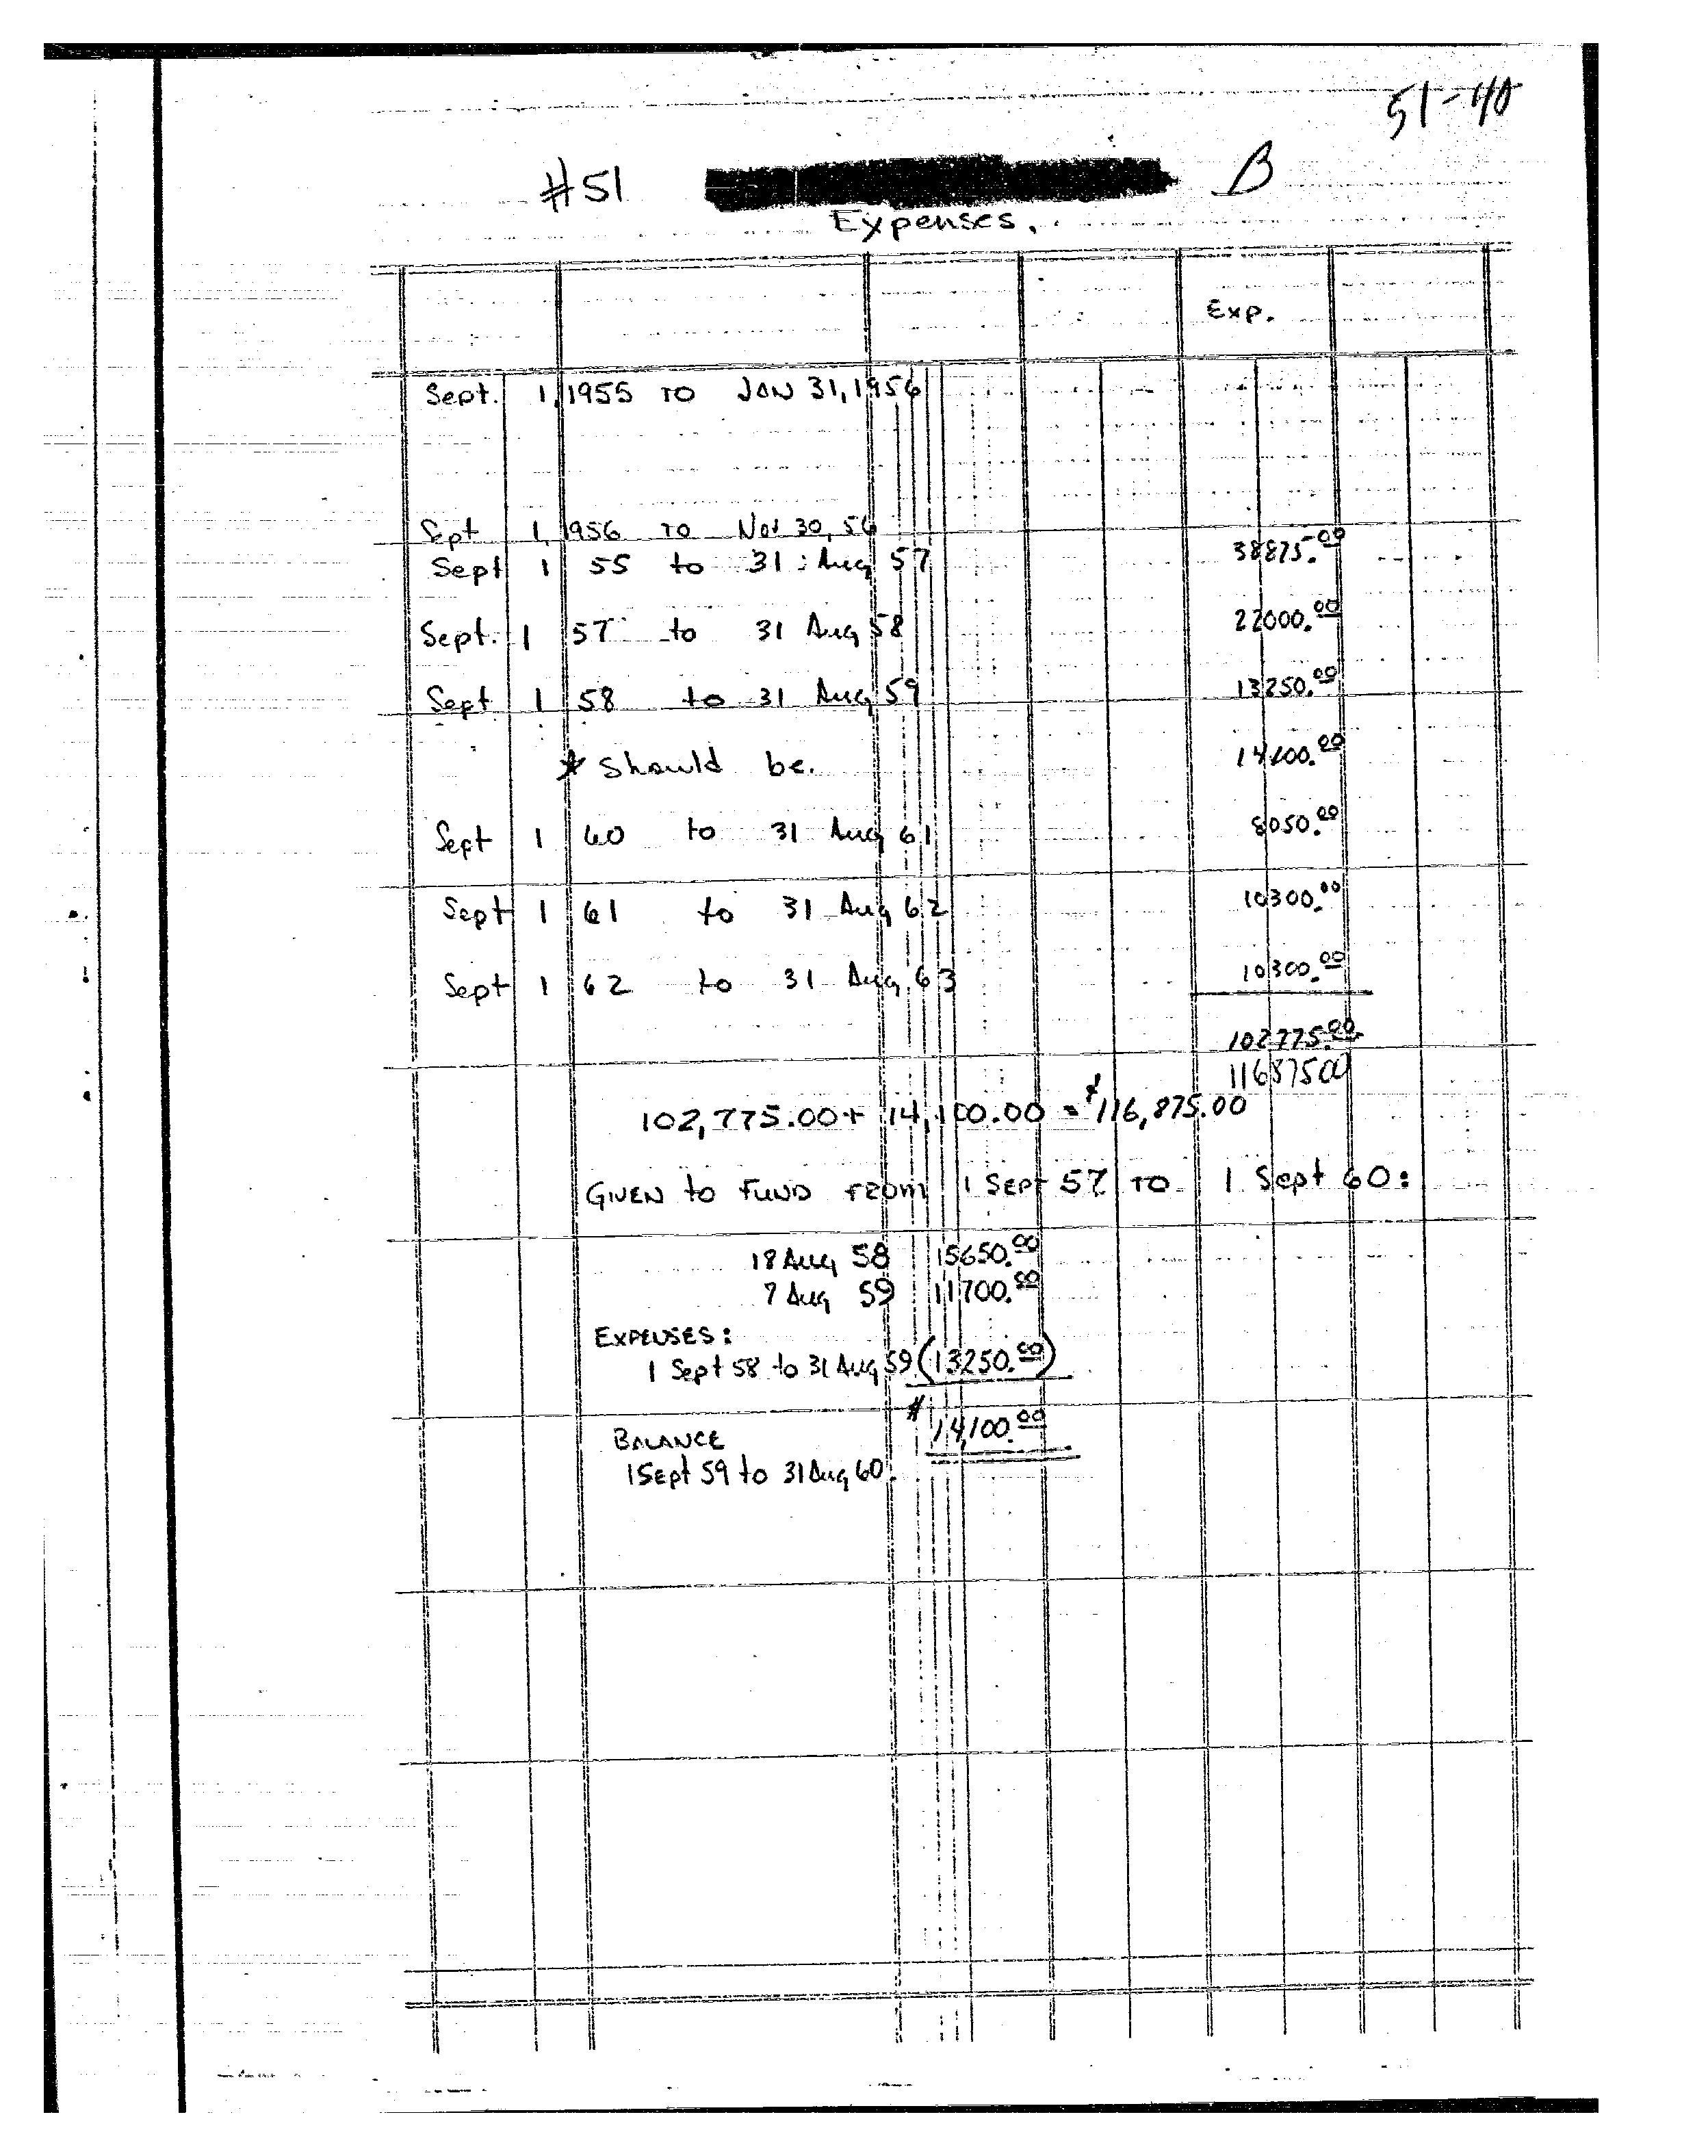 51-40
#51 B
Expenses.
Exp.
Sept. 1, 1955 TO JAN 31, 1956
Sept 1, 1956 TO Nov 30, 56
Sept 1 55 to 31 Aug 57 38875.00
Sept. 1 57 to 31 Aug 58 22000.00
Sept 1 58 to 31 Aug 59 13250.00
* Should be. 14100.00
Sept 1 60 to 31 Aug 61 8050.00
Sept 1 61 to 31 Aug 62 10300.00
Sept 1 62 to 31 Aug 63 10300.00
102775.00
116875.00
102,775.00 + 14,100.00 = $116,875.00
GIVEN to FUND FROM 1 SEPT 57 TO 1 Sept 60:
18 Aug 58 15650.00
7 Aug 59 11700.00
EXPENSES:
1 Sept 58 to 31 Aug 59 (13250.00)
$14,100.00
BALANCE
1 Sept 59 to 31 Aug 60.